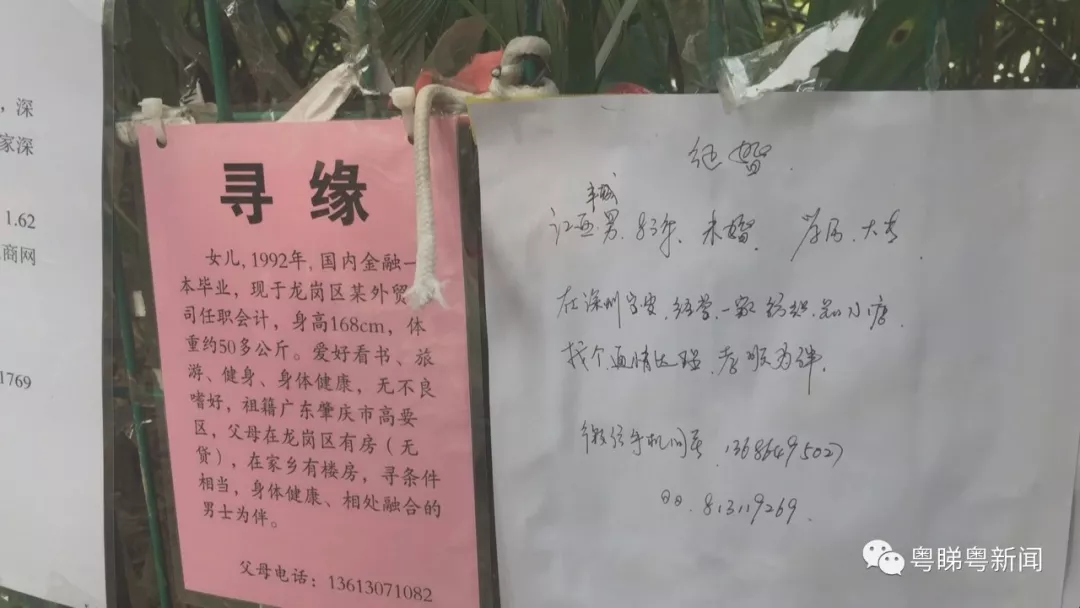 ，深
家深
1.62
商网
1769
寻缘
女儿，1992年，国内金融一
本毕业，现于龙岗区某外贸
司任职会计，身高168cm，体
重约50多公斤。爱好看书、旅
游、健身、身体健康，无不良
嗜好，祖籍广东肇庆市高要
区，父母在龙岗区有房（无
贷），在家乡有楼房，寻条件
相当，身体健康、相处融合的
男士为伴。
父母电话：13613071082
江西 男，83年，未婚，学历，大专
在深圳宝安，经营一家纺织 小店
找个通情达理，孝顺为伴。
微信手机同号 13686495027
QQ. 813119269.
粤睇粤新闻